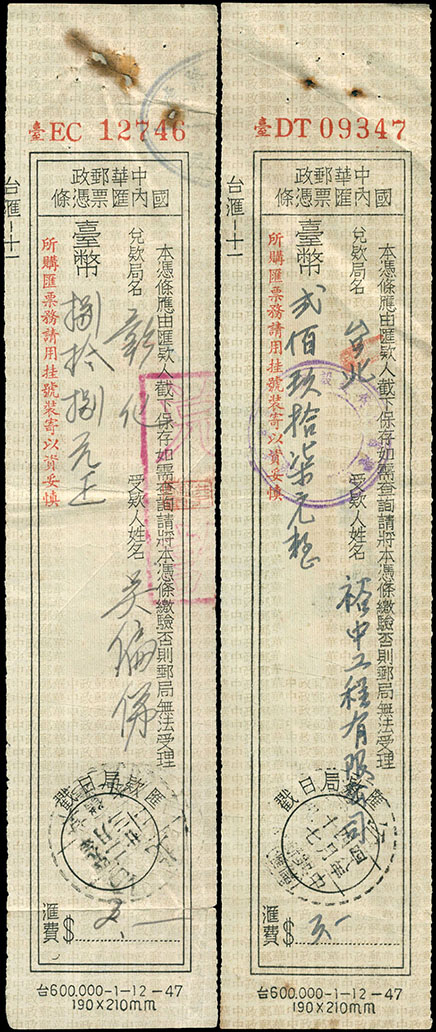 臺EC 12746
中華郵政
國內匯票憑條
台匯-十一
本憑條應由匯款人截下保存如需查詢請將本憑條繳驗否則郵局無法受理
兌款局名 彰化 受款人姓名 吳
臺幣 捌拾捌元正
所購匯票務請用挂號裝寄以資妥慎
匯款局日戳
匯費 $
台600.000-1-12-47
190X210mm
臺DT 09347
中華郵政
國內匯票憑條
台匯-十一
本憑條應由匯款人截下保存如需查詢請將本憑條繳驗否則郵局無法受理
兌款局名 台北 受款人姓名 裕中工程有限公司
臺幣 貳佰玖拾柒元整
所購匯票務請用挂號裝寄以資妥慎
匯款局日戳
匯費 $
台600.000-1-12-47
190X210mm